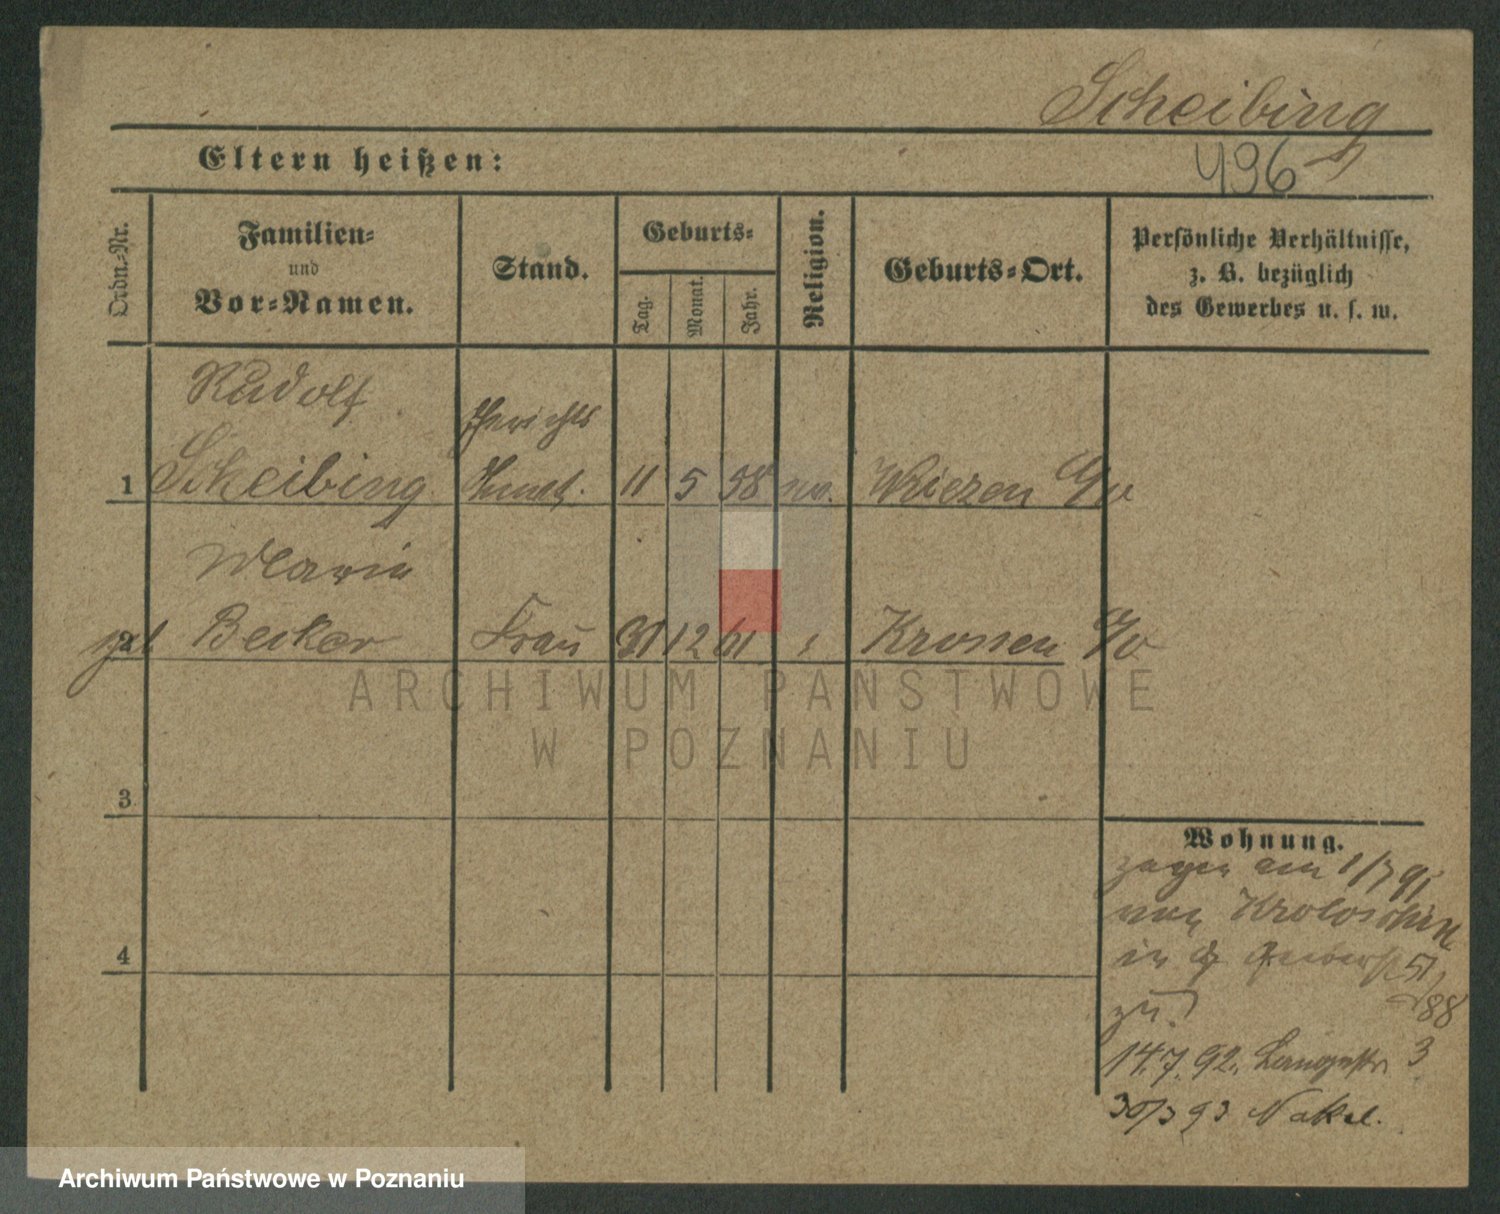 Scheibing
Eltern heißen:
496
Ordn.-Nr.
Familien-
und
Vor-Namen.
Stand.
Geburts-
Tag.
Monat.
Jahr.
Religion.
Geburts-Ort.
Persönliche Verhältnisse,
z. B. bezüglich
des Gewerbes u. s. w.
Rudolf
Gerichts
1 Scheibing 11 5 58 ev. Wriezen a/o
Marie
2 geb. Becker Frau 31 12 61 Krossen a/o
ARCHIWUM PANSTWOWE
W POZNANIU
3
Wohnung.
zogen am 1/7 91
von Krotoschin
4
in 51/88
zu.
14.7.92. Langestr. 3
30/3 93 Nakel.
Archiwum Państwowe w Poznaniu